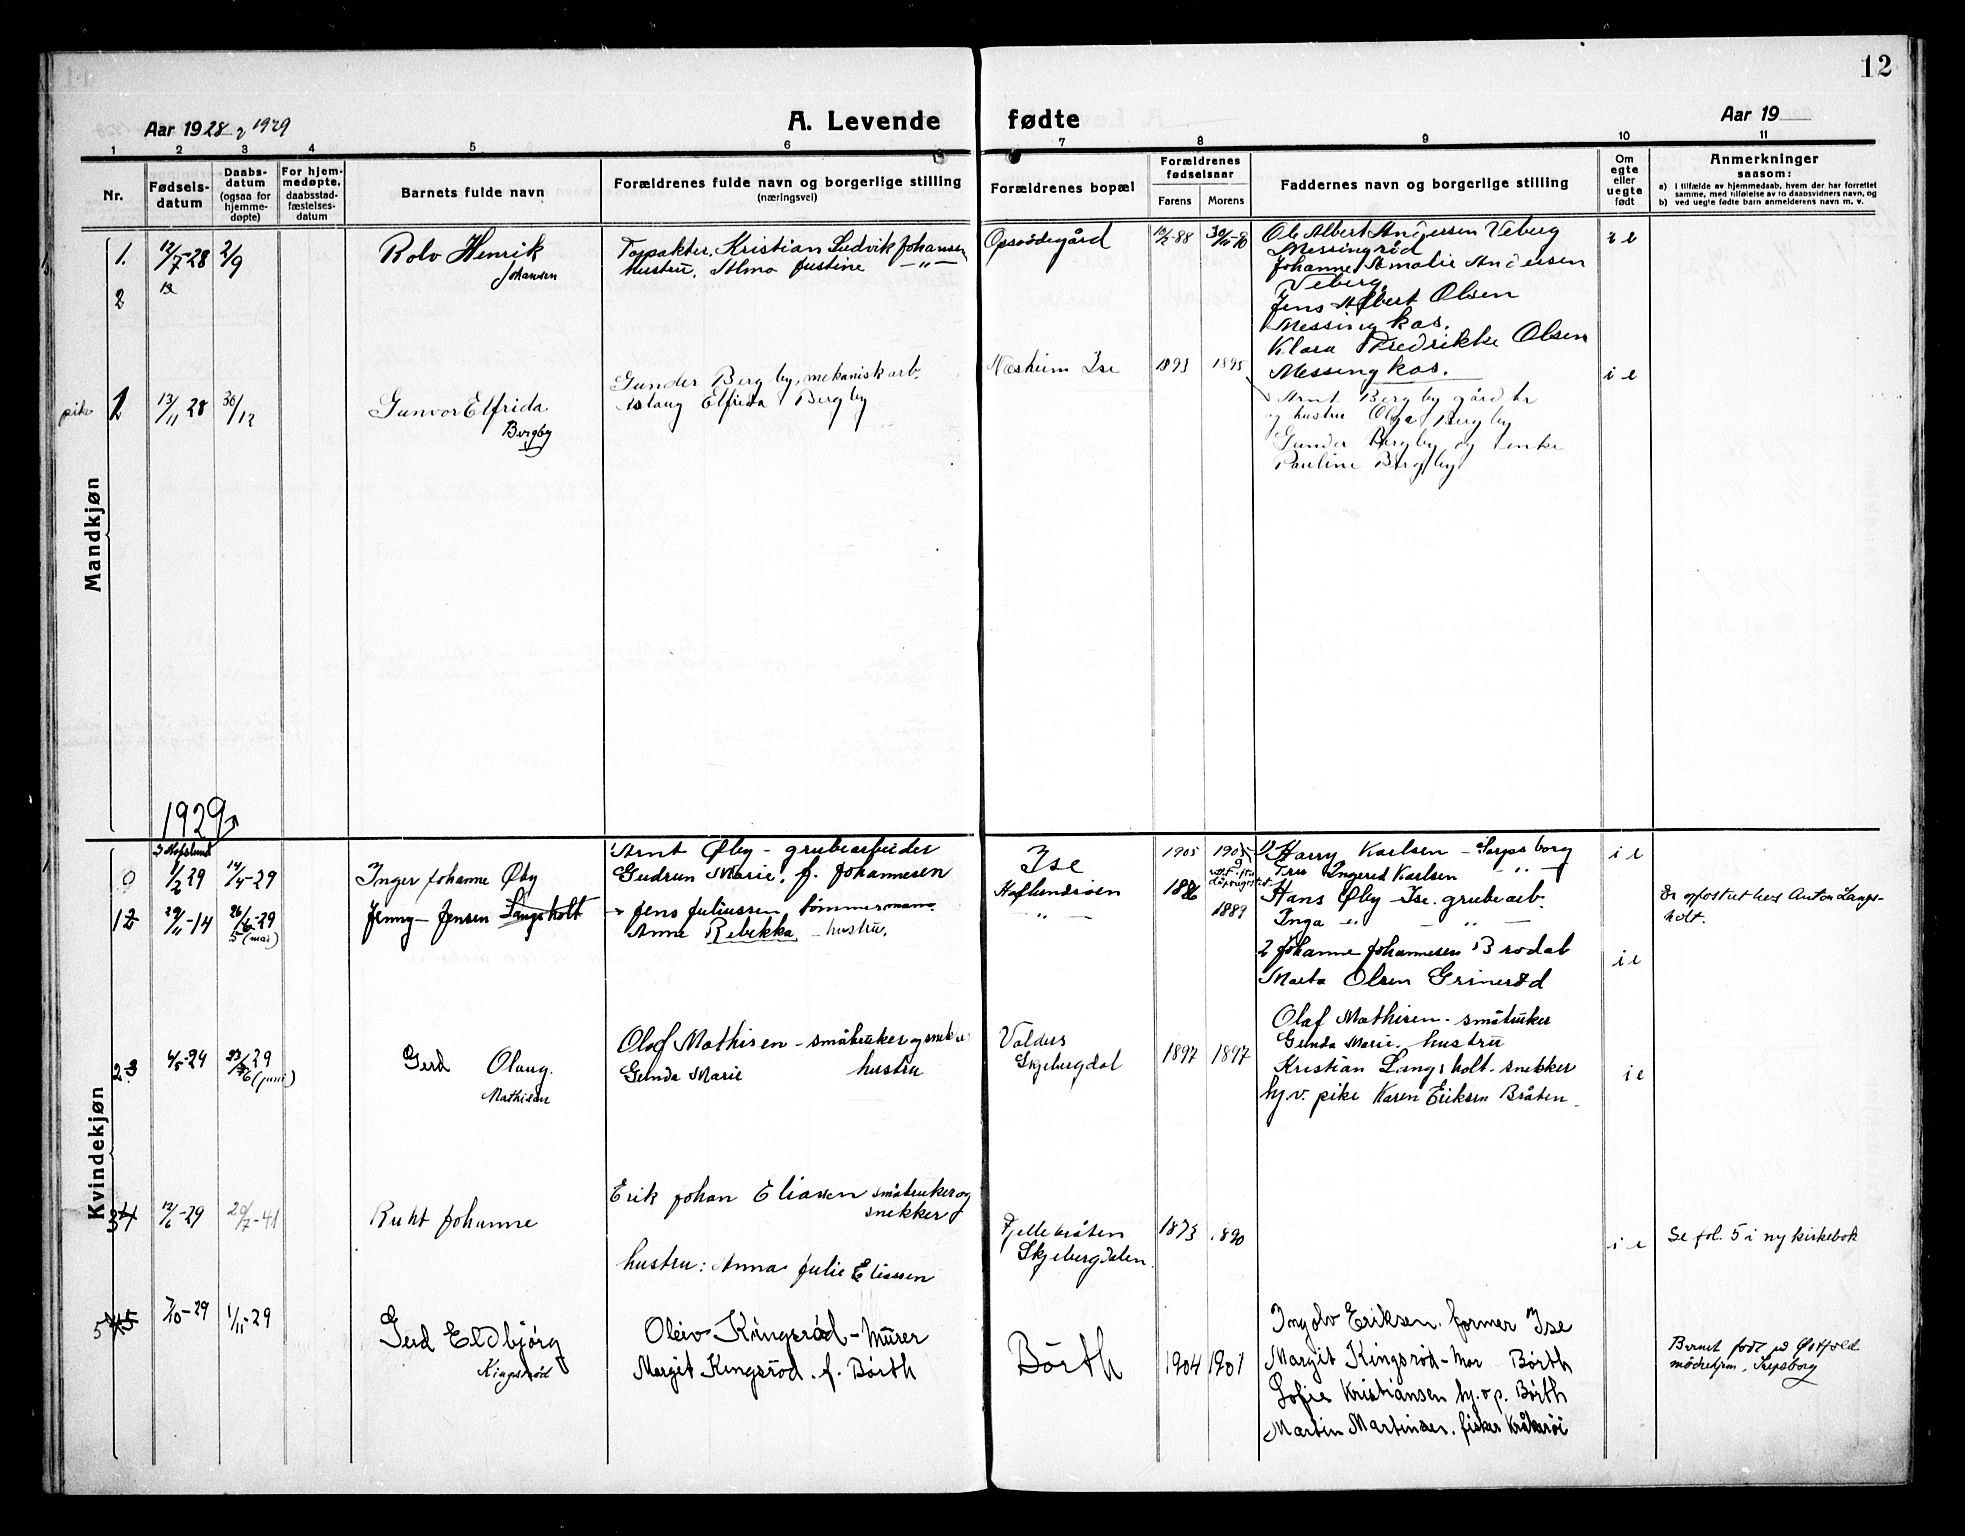 12
Aar 1928 & 1929
A. Levende fødte
Aar 19
1 2 3 4 5 6 7 8 9 10 11
Nr.
Fødsels-
datum
Daabs-
datum
(ogsaa for
hjemme-
døpte)
For hjem-
medøpte,
daabsstad-
fæstelses-
datum
Barnets fulde navn
Forældrenes fulde navn og borgerlige stilling
(næringsvei)
Forældrenes bopæl
Forældrenes
fødselsaar
Farens Morens
Faddernes navn og borgerlige stilling
Om
egte
eller
uegte
født
Anmerkninger
saasom:
a) i tilfælde av hjemmedaab, hvem der har forrettet
samme, med tilføielse av to daabsvidners navn, og
b) ved uegte fødte barn anmelderens navn m. v.
Mandkjøn
1. 12/7-28 2/9
Rolv Henrik
Johansen
Kristian Ludvik Johansen
hustru, Alma Justine -"-
Opsødegård
Ole Albert Andersen Veberg
Messingrød
Johanne Amalie Andersen
Veberg.
Jens Albert Olsen
Messing kas.
Klara Fredrikke Olsen
Messing kas.
i e
2
pike 13/11 28 30/12
Gunvor Elfrida
Bergby
Gunder Bergby, mekanisk arb.
Aslaug Elfrida Bergby
Næsheim Ise
1893 1895
Arnt Bergby gårdbr
og hustru Olga Bergby
Gunder Bergby og enke
Pauline Bergby
i e
1929
Kvindekjøn
0 1/2 29 14/4-29
Inger Johanne Øby
Arnt Øby - grubearbeider
Gudrun Marie, f. Johannesen
Ise
1905
Harry Karlsen - Sarpsborg
Fru Ingerid Karlsen -"-
Hans Øby - Ise. grubearb.
Inga -"- -"-
i e
12 29/11-14
5 (mai)
Jenny Jensen Langsholt
Jens Juliussen tømmermann
Anne Rebekka - hustru.
Hafslundsøen
-"-
1886 1889
2 Johanne Johannesen Brodal
Marta Olsen Grinerød
i e
Er opfostret hos Anton Langs-
holt.
23 4/5-29 (juni)
Gerd Olaug.
Mathisen
Olaf Mathisen - småbruker og snekker
Gunda Marie hustru
Valders
Skjebergdal
1897 1897
Olaf Mathisen - småbruker
Gunda Marie, hustru
Kristian Langsholt - snekker
hj.v. pike Karen Eriksen Bråten
i e
34 12/6-29 20/7-41
Ruht Johanne
Erik Johan Eliassen småbruker og
snekker
hustru: Anna Julie Eliassen
Fjellebråten
Skjebergdalen.
1873 1890
i e
Se fol. 5 i ny kirkebok
5 7/10-29 1/11-29
Gerd Eldbjørg
Kingsrød
Oleiv Kingsrød - Murer
Margit Kingsrød. f. Börth
Börth
1904 1901
Ingolv Eriksen. former Ise
Margit Kingsrød - Mor Børth
Sofie Kristiansen hj.v.p. Børth
Martin Martinsen, fisker Kråkerøi
Barnet født på Østfold
mødrehjem, Sarpsborg